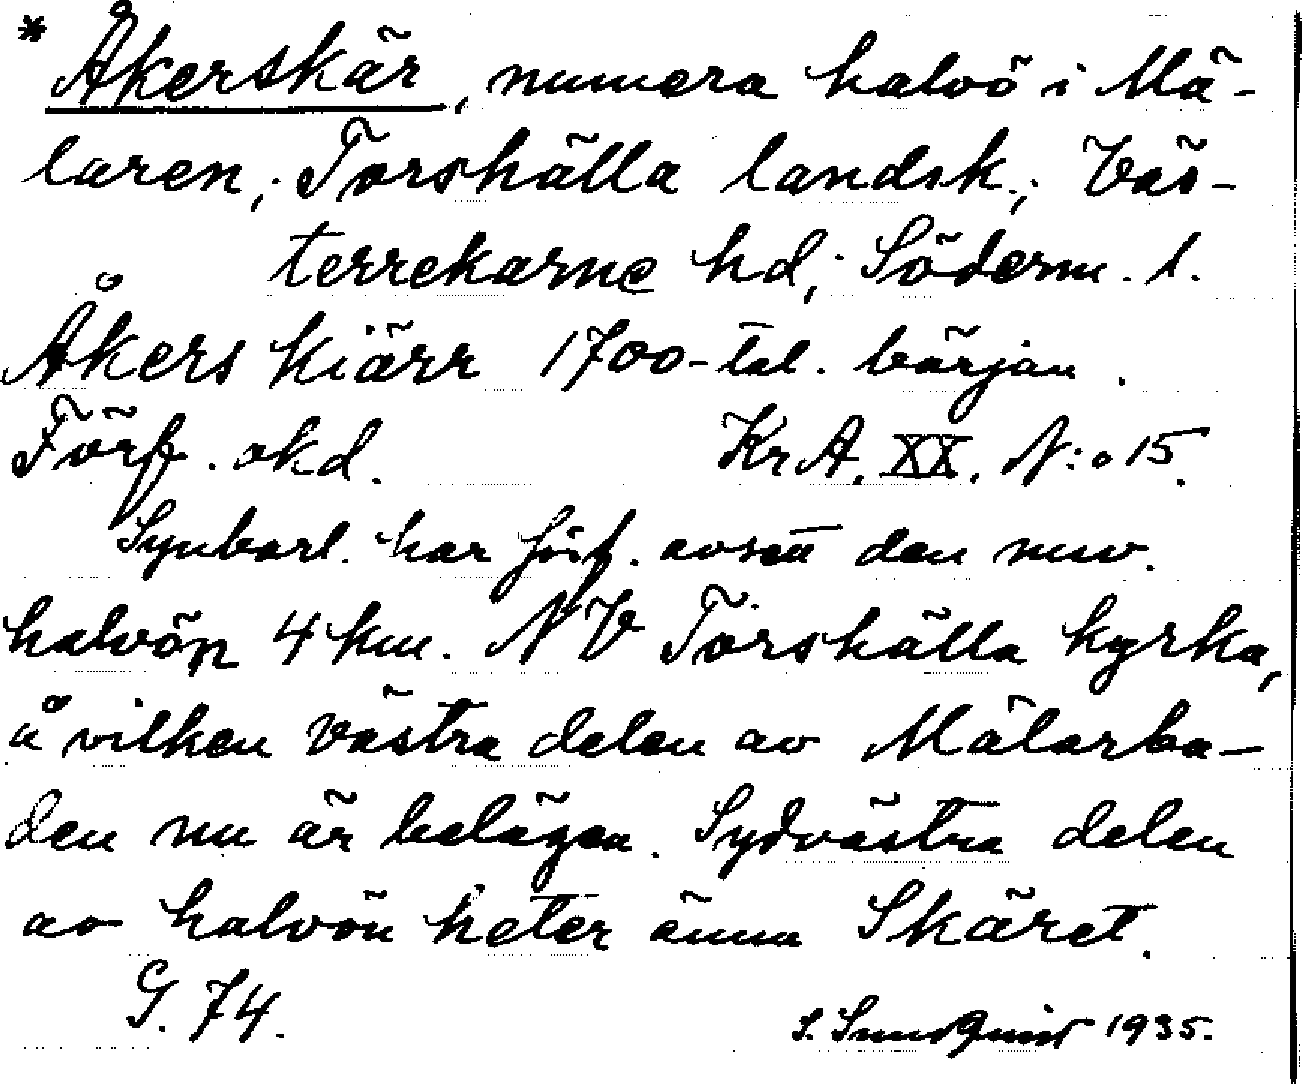 * Åkerskär, numera halvö i Mä-
laren; Torshälla landsk.; Väs-
terrekarne hd; Söderm. l.
Åkers kiärr 1700-tal. början.
Förf. okd. KrA. XX. N:o 15.
Synbarl. har förf. avsett den nuv.
halvön 4 km. NV Torshälla kyrka,
å vilken västra delen av Mälarba-
den nu är belägen. Sydvästra delen
av halvön heter ännu Skäret.
G. 74.
S. Sundquist 1935.